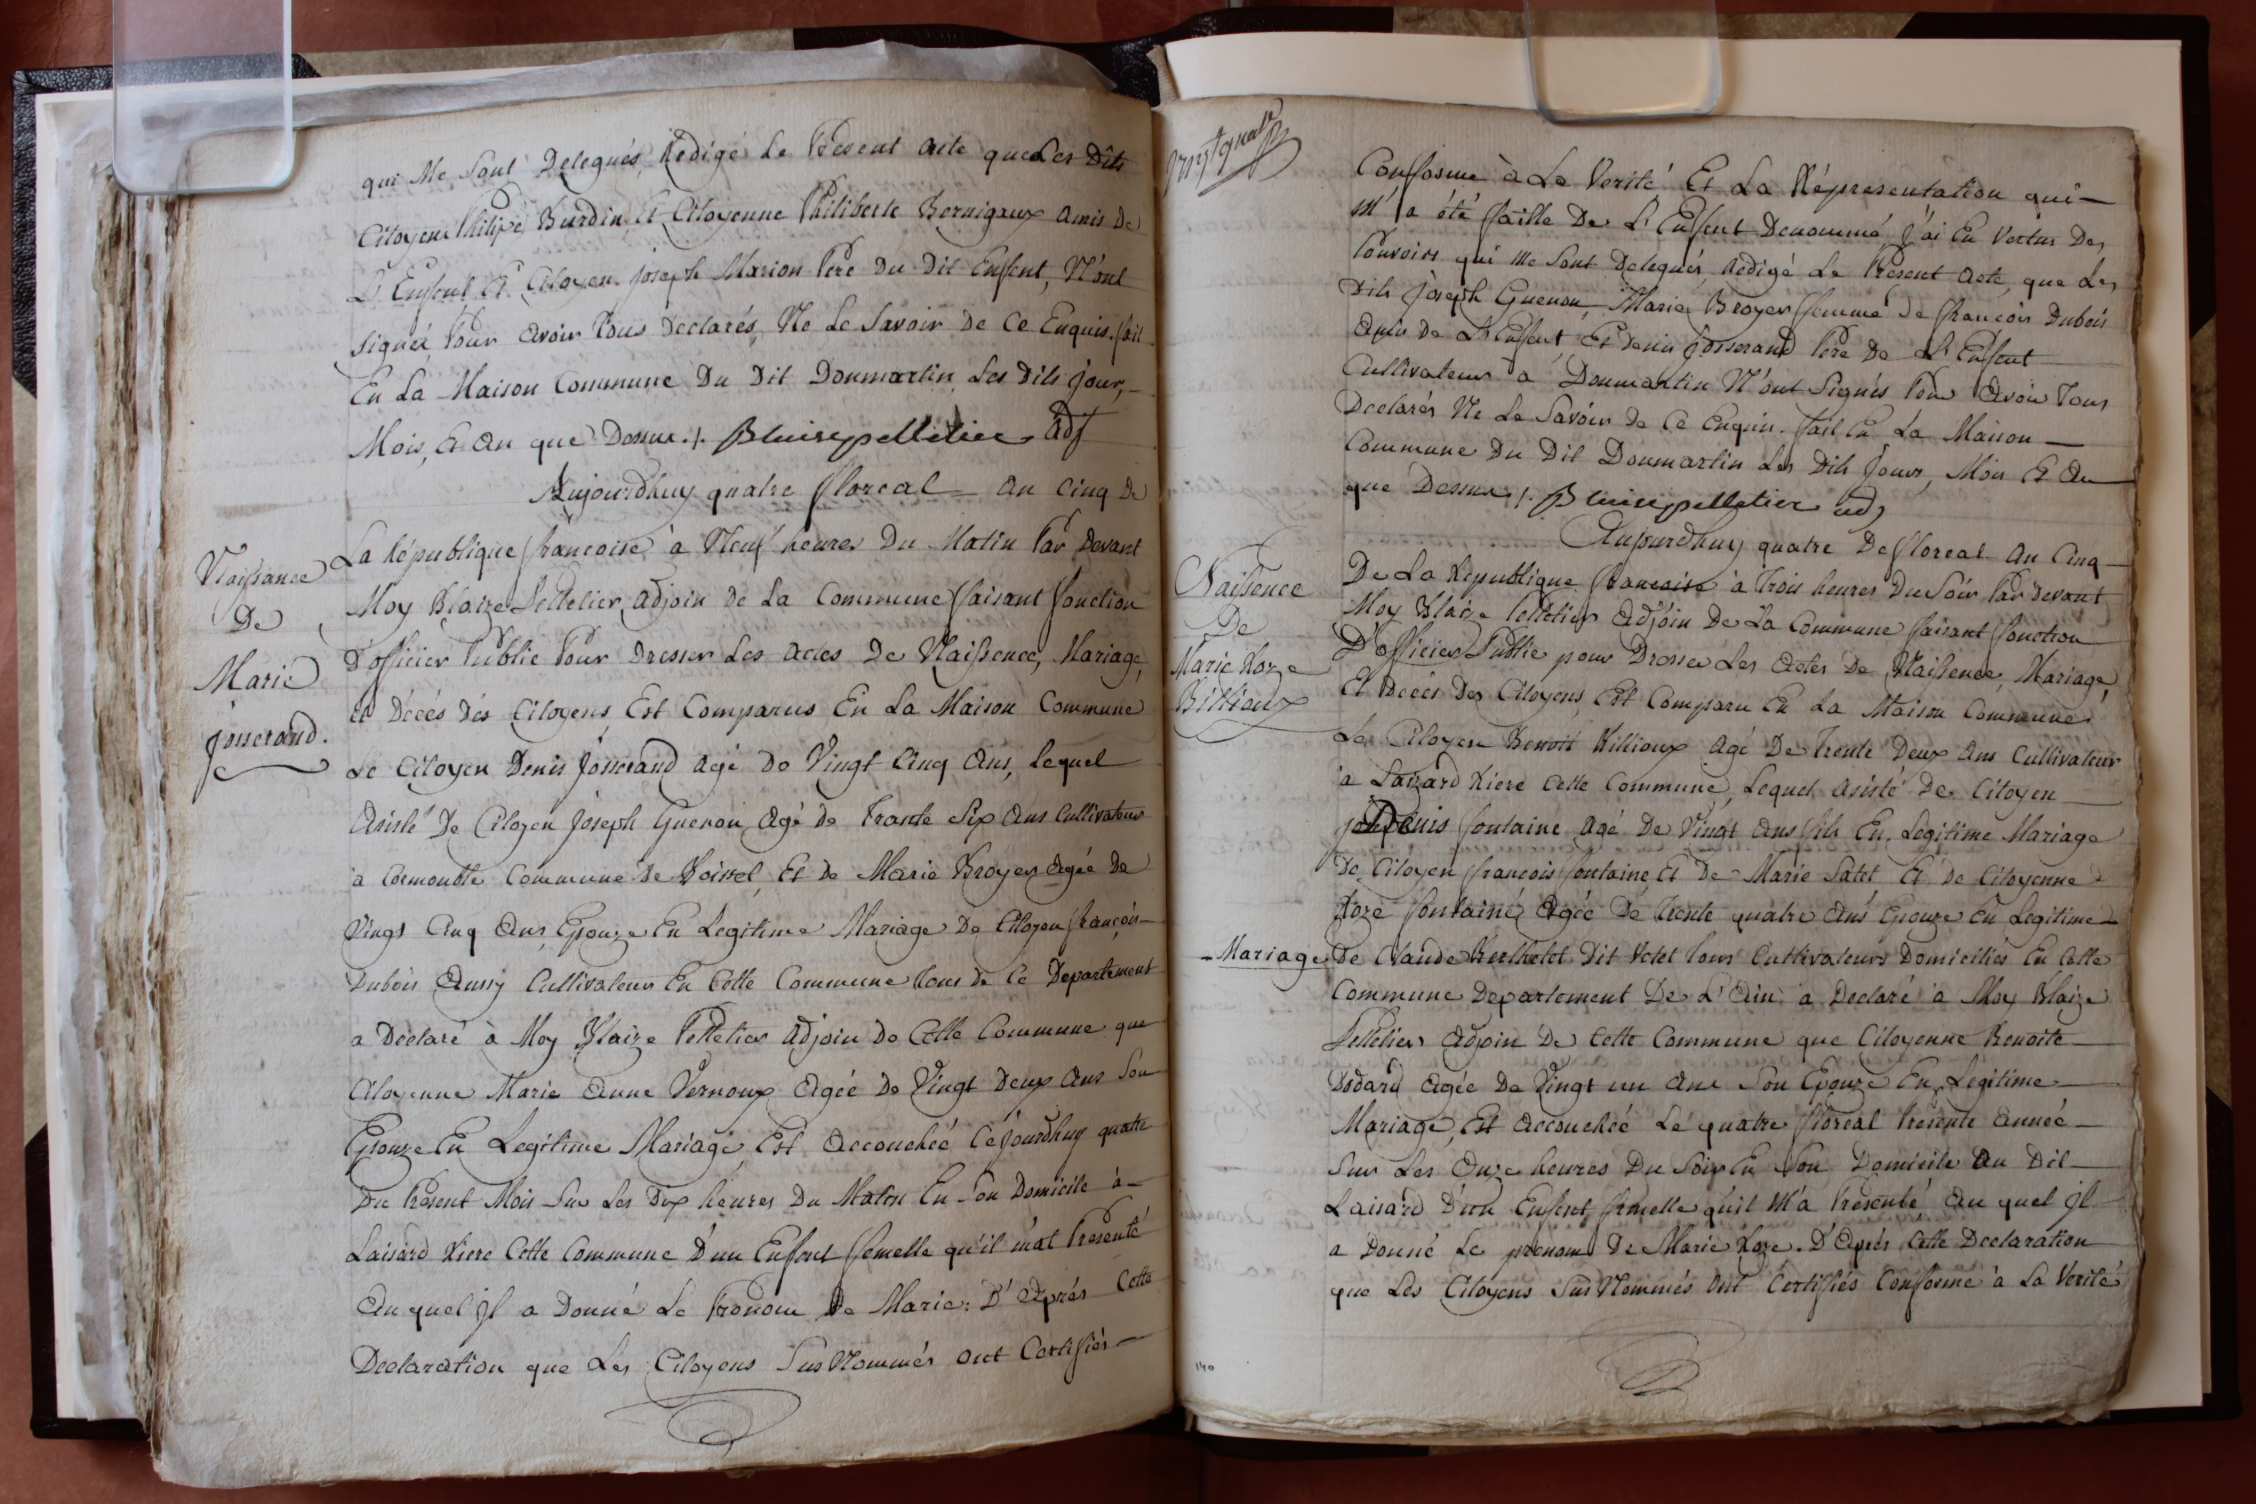 qui Me Sont Delegués, Redigé Le Présent acte que Les Dits
Citoyens Philipe Burdin Et Citoyenne Philiberte Bernigaux amis De
L'Enfent Et Citoyen joseph Marion Pere Du Dit Enfent, N'ont
signés Pour avoir Tous Declarés, Ne Le Savoir De Ce Enquis. fait
En La Maison Commune Du Dit Doumartin Les Dits jour,
Mois, Et an que Dessus ./. Blaise pelletier adj
Aujourdhuy quatre floreal an Cinq De
La République francoise à Neuf heures Du Matin Par Devant
Moy Blaize Pelletier, adjoin de La Commune faisant fonction
D'officier Public Pour Dresser Les actes De Naissence, Mariage,
et Décés dés Citoyens Est Comparus En La Maison Commune
Le Citoyen Denis Josserand agé De Vingt Cinq ans, Lequel
asisté De Citoyen Joseph Guenon agé de Trante Six ans Cultivateur
à Cormouble Commune De Boissel, Et De Marie Broyer agée De
Vingt Cinq ans Epouze En Legitime Mariage De Citoyen françois
Dubois aussy Cultivateur En Cette Commune tous De Ce Departement
a Déclaré à Moy Blaize Pelletier adjoin De Cette Commune que
Citoyenne Marie anne Vernoux agée De Vingt Deux ans Son
Epouze En Legitime Mariage Est accouchée Cejourdhuy quatre
Du Présent Mois Sur Les Dix heures Du Matin En Son Domicile à
Laisard Riere Cette Commune D'un Enfent femelle qu'il m'at Présenté
au quel jl a Donné Le Pronom De Marie: D'aprés Cette
Declaration que Les Citoyens Sus Nommés ont Certifiés
Naissance
De
Marie
josserand.
Conforme à La Verité Et La Réprésentation qui
M'a été faitte De L'Enfent Denommé J'ai En Vertus Des
Pouvoirs qui Me Sont Delegués, Redigé Le Présent acte, que Les
Dits Joseph Guenon, Marie Broyer femme De francois Dubois
amis De L'Enfent Et Denis Josserand Pere De L'Enfent
Cultivateurs à Doumartin N'ont Signés Pour avoir Tous
Declarés Ne Le Savoir De Ce Enquis. fait En La Maison
Commune Du Dit Doumartin Les Dits Jour, Mois Et an
que Dessus ./. Blaise pelletier adj
Aujourdhuy quatre De floreal an Cinq
De La Republique francoise à Trois heures Du Soir Par Devant
Moy Blaize Pelletier adjoin De La Commune faisant fonction
D'officier Public pour Dresser Les actes De Naissence, Mariage,
Et Décés Des Citoyens, Est Comparu En La Maison Commune
Le Citoyen Benoit Billioux agé De Trente Deux ans Cultivateur
à Laizard Riere Cette Commune, Lequel asisté De Citoyen
Denis fontaine agé De Vingt ans fils En Legitime Mariage
De Citoyen francois fontaine Et De Marie Satet Et De Citoyenne
Roze fontaine agée De Trente quatre ans Epouze En Legitime
Mariage De Claude Berthelet Dit Votet Tous Cultivateurs Domiciliés En Cette
Commune Departement De L'ain à Declaré à Moy Blaize
Pelletier adjoin De Cette Commune que Citoyenne Benoite
Dodard agée De Vingt un ans Son Epouze En Legitime
Mariage, Est accouchée Le quatre floréal Présente année
Sur Les Onze heures Du Soir En Son Domicile au Dit
Laisard D'un Enfent femelle qu'il M'a Présenté au quel jl
a Donné Le prenom De Marie Roze. D'aprés Cette Declaration
que Les Citoyens Sus Nommés ont Certifiés Conforme à La Verité
Naissence
De
Marie Roze
Billioux
140